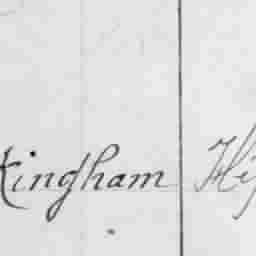 kingham Hi